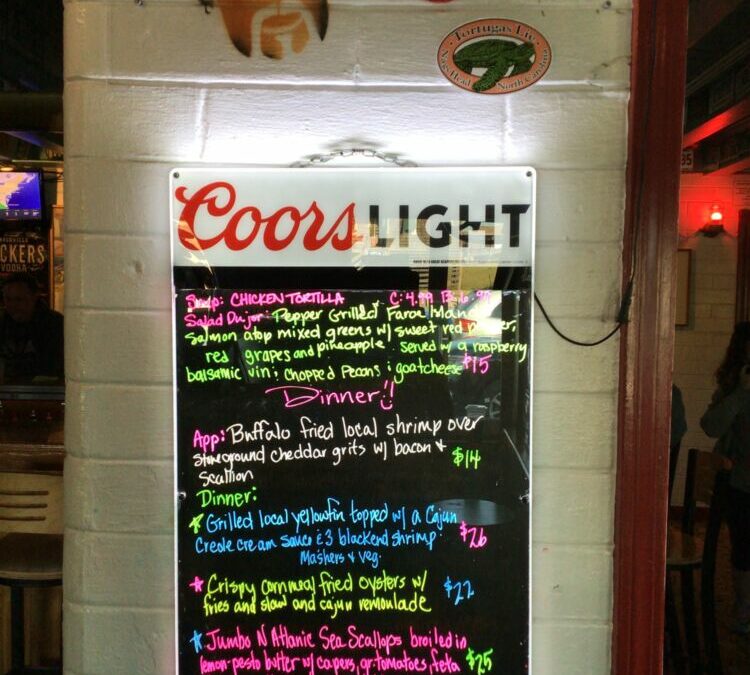 Tortugas' Lie
Nags Head North Carolina
Coors LIGHT
Soup: CHICKEN TORTILLA C: 4.99 B: 6.99
Salad Dujor: Pepper Grilled Faroe Island
Salmon atop mixed greens w/ sweet red pepper,
red grapes and pineapple. served w/ a raspberry
balsamic vin; chopped pecans & goat cheese $15
Dinner!!
App: Buffalo fried local shrimp over
stoneground cheddar grits w/ bacon &
scallion $14
Dinner:
Grilled local yellowfin topped w/ a Cajun
Creole cream sauce & 3 blackend shrimp. $26
Mashers & veg.
Crispy cornmeal fried oysters w/
fries and slaw and cajun remoulade $22
Jumbo N Atlanic Sea Scallops broiled in
lemon-pesto butter w/ capers, gr. tomatoes, feta $25
CKERS
VODKA
35